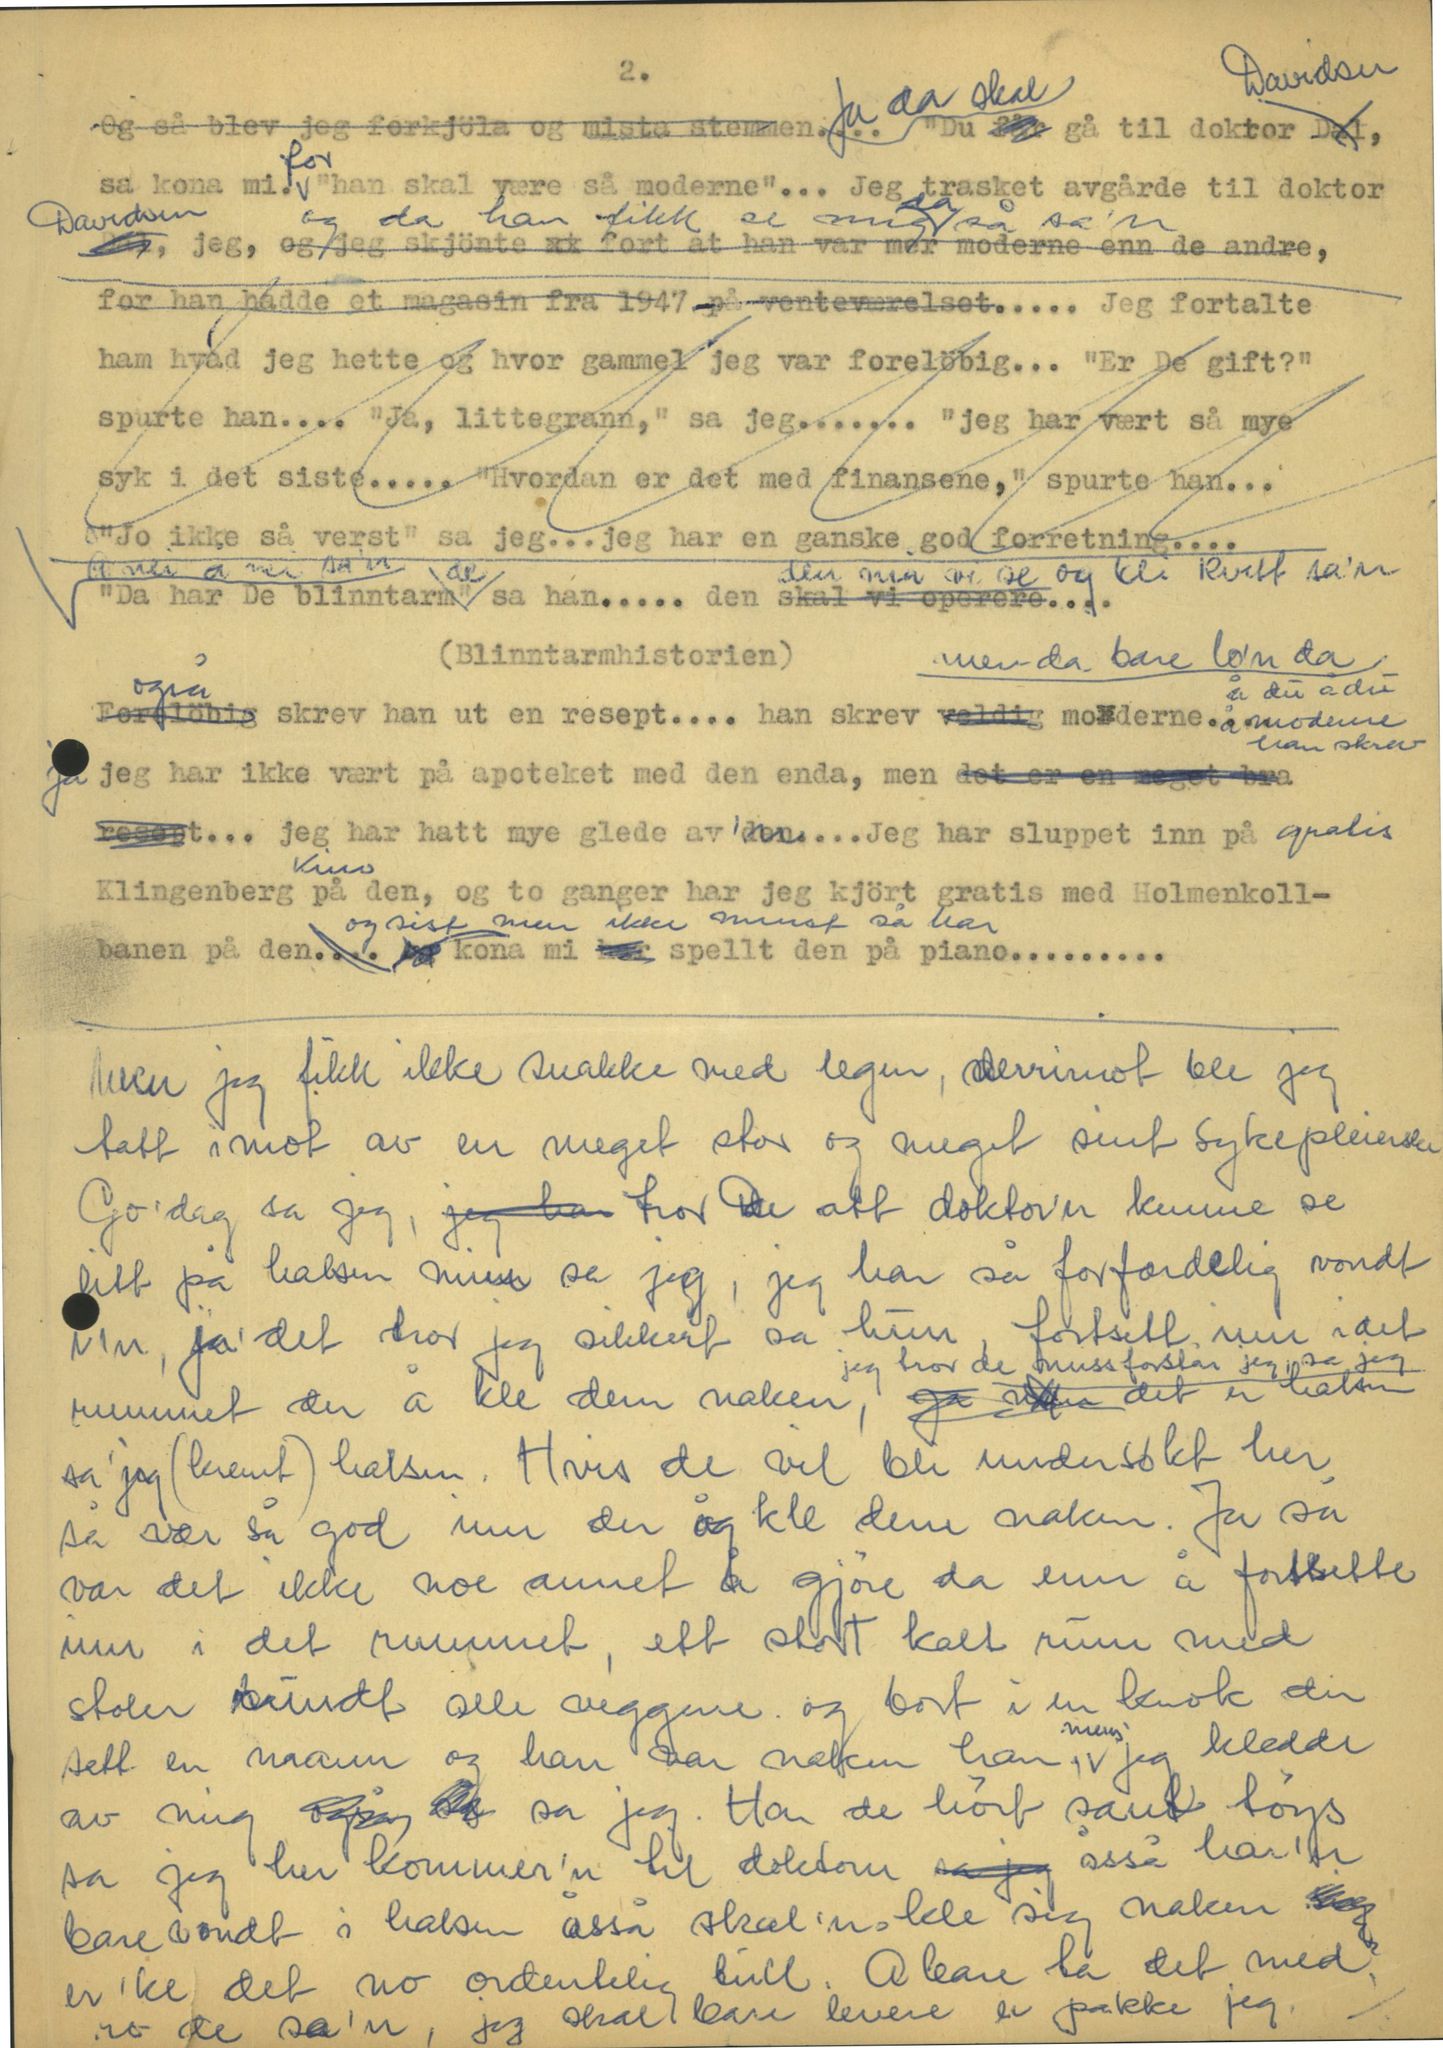 2.
Ja da skal Davidsen
Og så blev jeg forkjöla og mista stemmen.... "Du får gå til doktor Dal,
for
sa kona mi. "han skal være så moderne"... Jeg trasket avgårde til doktor
Davidsen og da han fikk se mig da så sa'n
Dal, jeg, og jeg skjönte xx fort at han var mer moderne enn de andre,
for han hadde et magasin fra 1947 på venteværelset..... Jeg fortalte
ham hvad jeg hette og hvor gammel jeg var forelöbig... "Er De gift?"
spurte han.... "Ja, littegrann," sa jeg....... "jeg har vært så mye
syk i det siste..... "Hvordan er det med finansene," spurte han...
"Jo ikke så verst" sa jeg...jeg har en ganske god forretning....
Å nei å nei sa'n de den må vi se og bli kvitt sa'n
"Da har De blinntarm" sa han..... den skal vi operere....
(Blinntarmhistorien)
men da bare lo'n da
også å du å du
Forelöbig skrev han ut en resept.... han skrev veldig moderne....
å moderne
han skrev
ja jeg har ikke vært på apoteket med den enda, men det er en meget bra
resept... jeg har hatt mye glede av'n den....Jeg har sluppet inn på gratis
kino
Klingenberg på den, og to ganger har jeg kjört gratis med Holmenkoll-
og sist men ikke minst så har
banen på den.... kona mi har spellt den på piano.........
Men jeg fikk ikke snakke med legen, derrimot ble jeg
tatt imot av en meget stor og meget sint sykepleierske
Go'dag sa jeg, jeg har tror De att doktor'n kunne se
litt på halsen min sa jeg, jeg har så forfærdelig vondt
i'n, ja det tror jeg sikkert sa hun, fortsett inn i det
jeg tror de missforstår jeg, sa jeg
rummet der å kle dem naken, det er halsen
sa jeg (kremt) halsen. Hvis de vil bli undersökt her
så vær så god inn der og kle dem naken. Ja så
var det ikke noe annet å gjöre da enn å fortsette
inn i det rummet, ett stort kalt rum med
stoler rundt alle veggene og bort i en krok der
mens
satt en mann og han var naken han, jeg kledde
av mig også sa jeg. Har de hört sånt töys
sa jeg her kommer'n til doktorn sa jeg åsså har'n
bare vondt i halsen åsså skal'n kle sig naken
er'ke det no ordentelig tull. Å bare ta det med
ro de sa'n, jeg skal bare levere en pakke jeg.